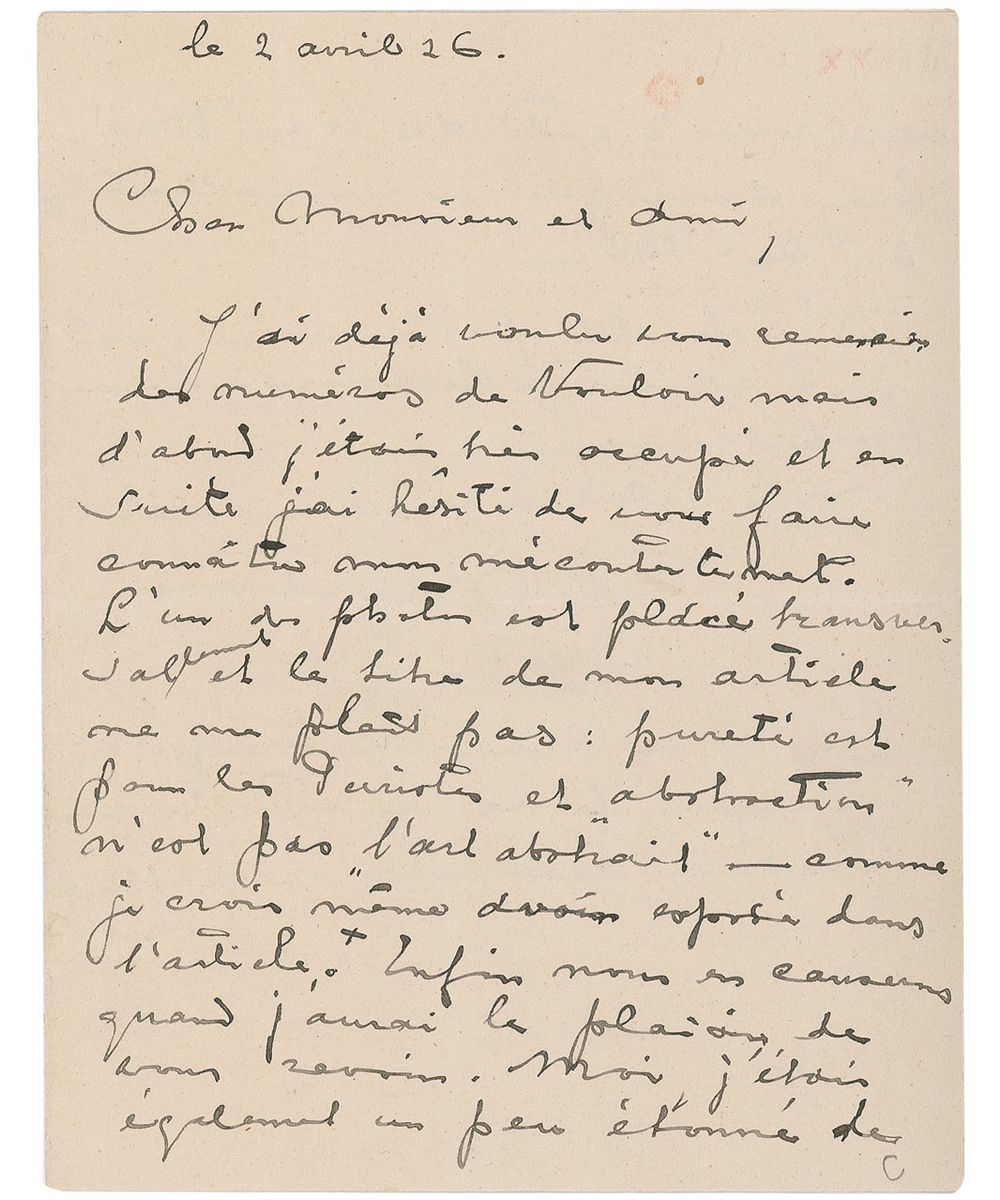 le 2 avril 26.
Cher Monsieur et ami,
J'ai déjà voulu vous remercier
des numéros de Vouloir mais
d'abord j'étais très occupé et en
suite j'ai hésité de vous faire
connaître mon mécontentemet.
L'un des photos est placé transver-
salement et le titre de mon article
ne me plaît pas : pureté est
pour les Puristes et abstraction"
n'est pas "l'art abstrait" — comme
je crois "même avoir exposé dans
l'article.+ Enfin nous en causerons
quand j'aurai le plaisir de
vous revoir. Moi, j'étais
égalemet un peu étonné de